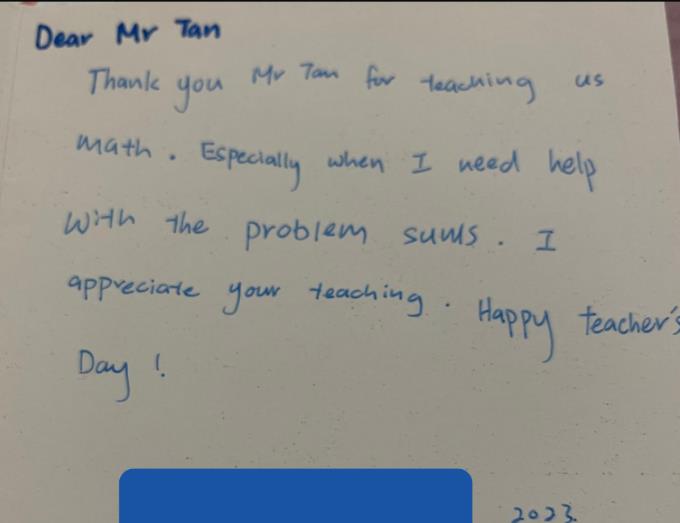 Dear Mr Tan
Thank you Mr Tan for teaching us
math. Especially when I need help
with the problem sums. I
appreciate your teaching. Happy teacher's
Day!
2023.